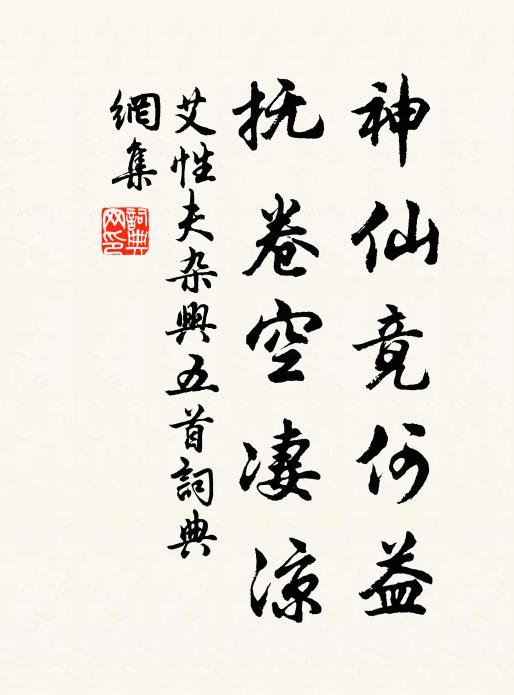 神仙竟何益
抚卷空凄涼
艾性夫杂興五首詞典
網集
詞典网印